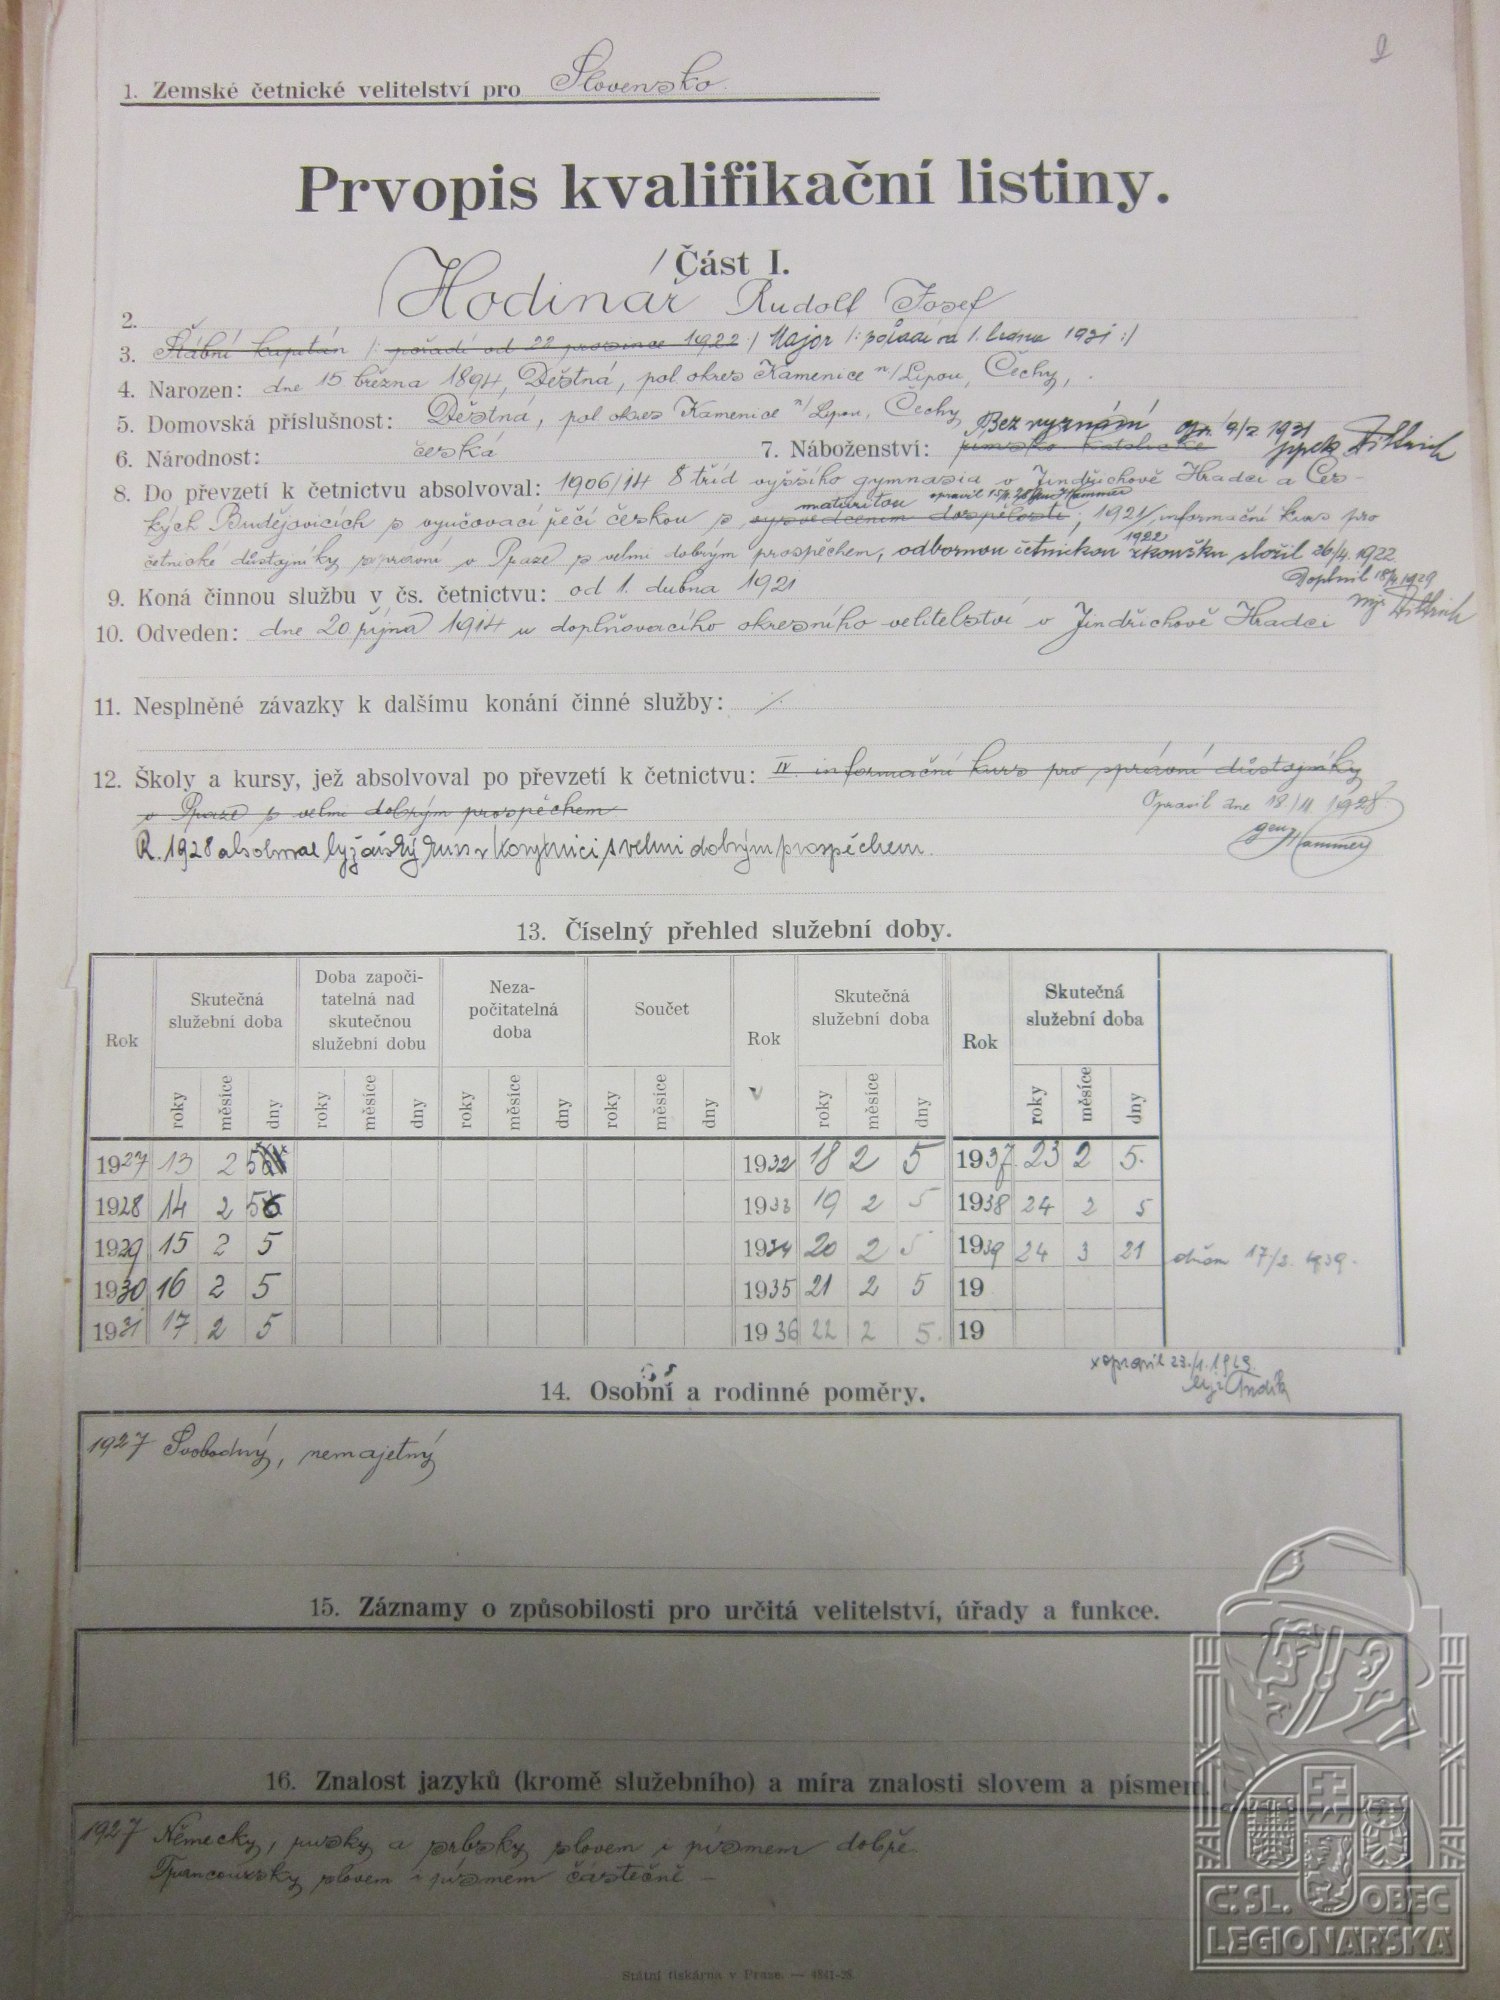 1. Zemské četnické velitelství pro Slovensko
Prvopis kvalifikační listiny.
Část I.
2. Hodinář Rudolf Josef
3. Štábní kapitán /: pořadí od 22 prosince 1922 / Major /: pořadí od 1. ledna 1931 :/
4. Narozen: dne 15 března 1894, Děštná, pol. okres Kamenice n/Lipou, Čechy,
5. Domovská příslušnost: Děštná, pol okres Kamenice n/Lipou, Čechy
Bez vyznání opr. 9/2 1931
6. Národnost: česká 7. Náboženství: římsko katolické pplk Dittrich
8. Do převzetí k četnictvu absolvoval: 1906/14 8 tříd vyššího gymnasia v Jindřichově Hradci a Čes-
maturitou opravil 15/11. 28 gen Hammer
kých Budějovicích s vyučovací řečí českou s vysvědčením dospělosti, 1921/ informační kurs pro
1922
četnické důstojníky správní v Praze s velmi dobrým prospěchem, odbornou četnickou zkoušku složil 26/4. 1922
Doplnil 18/4 1929
9. Koná činnou službu v čs. četnictvu: od 1. dubna 1921
mjr Dittrich
10. Odveden: dne 20 října 1914 u doplňovacího okresního velitelství v Jindřichově Hradci
11. Nesplněné závazky k dalšímu konání činné služby: ./.
12. Školy a kursy, jež absolvoval po převzetí k četnictvu: IV. informační kurs pro správní důstojníky
v Praze s velmi dobrým prospěchem
Opravil dne 18/11 1928
gen Hammer
R. 1928 absolvoval lyžařský kurs v Korytnici s velmi dobrým prospěchem.
13. Číselný přehled služební doby.
Rok Skutečná služební doba Doba započi-tatelná nad skutečnou služební dobu Neza-počitatelná doba Součet Rok Skutečná služební doba Rok Skutečná služební doba
roky měsíce dny roky měsíce dny roky měsíce dny roky měsíce dny roky měsíce dny roky měsíce dny
1927 13 2 5 1932 18 2 5 1937 23 2 5.
1928 14 2 5 1933 19 2 5 1938 24 2 5
1929 15 2 5 1934 20 2 5 1939 24 3 21 dnem 17./3. 1939.
1930 16 2 5 1935 21 2 5 19
1931 17 2 5 1936 22 2 5. 19
x opravil 23./1.
14. Osobní a rodinné poměry.
1927 Svobodný, nemajetný
15. Záznamy o způsobilosti pro určitá velitelství, úřady a funkce.
16. Znalost jazyků (kromě služebního) a míra znalosti slovem a písmem.
1927 Německy, rusky a srbsky slovem i písmem dobře.
Francouzsky slovem i písmem částečně –
Státní tiskárna v Praze. — 4841-28.
Č.SL. OBEC
LEGIONÁŘSKÁ